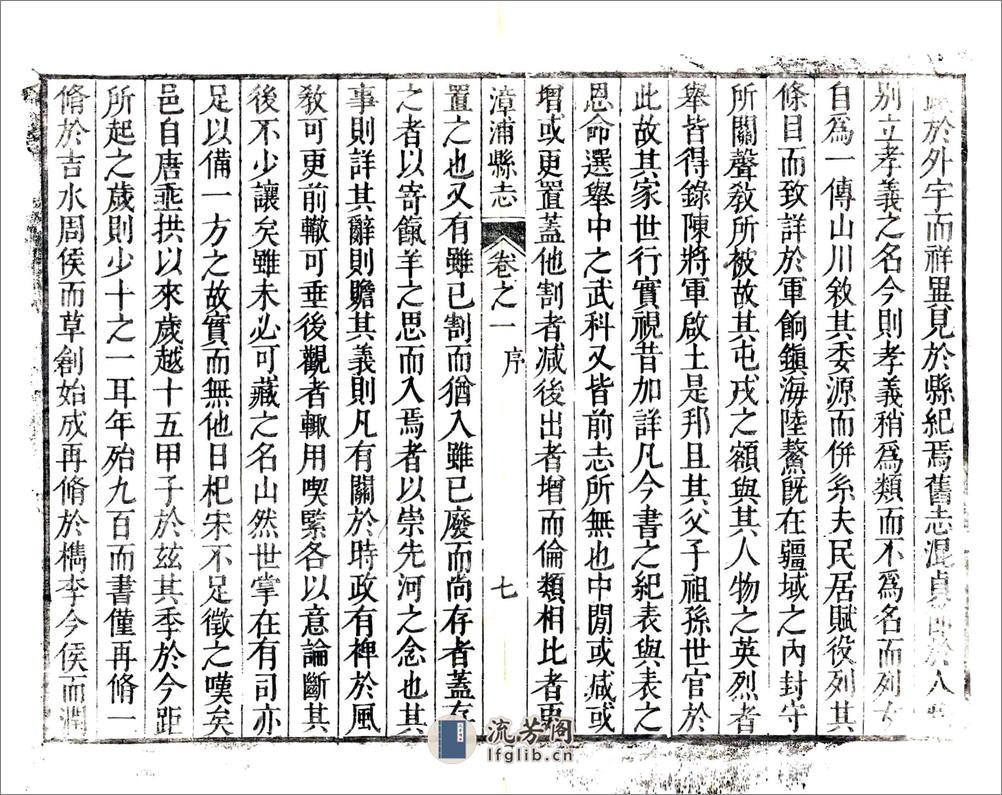 於外字而祥異見於縣紀焉舊志混貞於人
別立孝義之名今則孝義稍爲類而不爲名而列女
自爲一傳山川敘其委源而併系夫民居賦役列其
條目而致詳於軍餉鎭海陸鰲旣在疆域之內封守
所關聲敎所被故其屯戍之額與其人物之英烈者
舉皆得錄陳將軍啟土是邦且其父子祖孫世官於
此故其家世行實視昔加詳凡今書之紀表與表之
恩命選舉中之武科又皆前志所無也中閒或減或
增或更置蓋他割者减後出者增而倫類相比者更
漳浦縣志
卷之一
序
七
置之也又有雖已割而猶入雖已廢而尚存者蓋存
之者以寄餼羊之思而入焉者以崇先河之念也其
事則詳其辭則贍其義則凡有關於時政有裨於風
敎可更前轍可垂後觀者輙用喫緊各以意論斷其
後不少讓矣雖未必可藏之名山然世掌在有司亦
足以備一方之故實而無他日杞宋不足徵之嘆矣
邑自唐垂拱以來歲越十五甲子於玆其季於今距
所起之歲則少十之一耳年殆九百而書僅再脩一
脩於吉水周侯而草創始成再脩於檇李今侯而潤
流芳阁
lfglib.cn